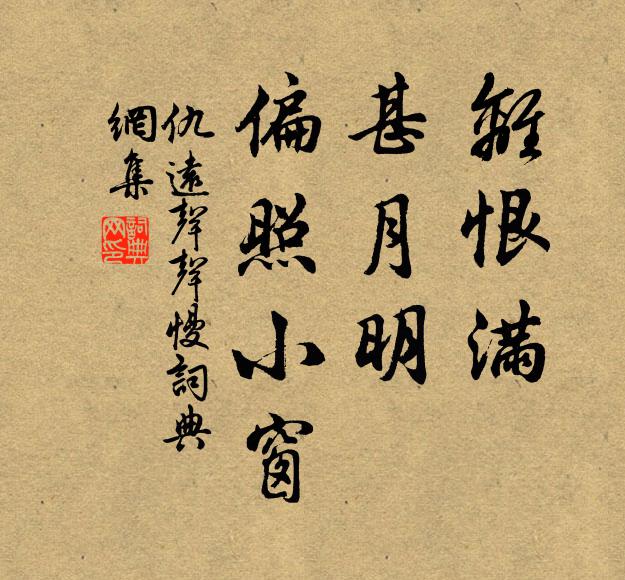 離恨滿
甚月明
偏照小窗
仇遠聲聲慢詞典
網集
詞典
网印